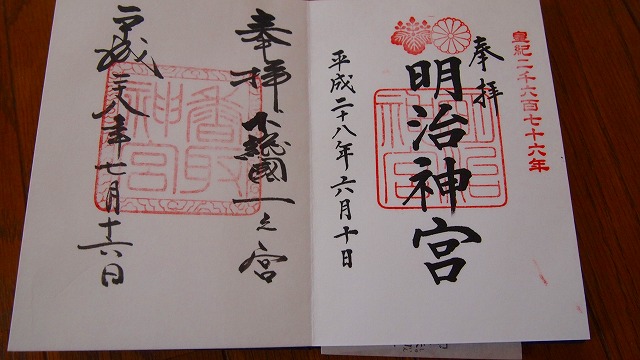 皇紀二千六百七十六年
奉拝
明治神宮
明治神宮
平成二十八年六月十日
奉拝 下総國一之宮
香取神宮
平成二十八年七月十六日